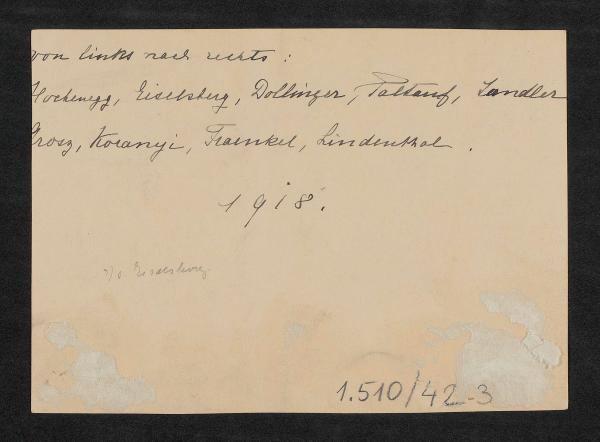 von links nach rechts:
Hochenegg, Eiselsberg, Dollinger, Paltauf, Sandler
Grosz, Koranyi, Fraenkel, Lindenthal.
1918.
v. Eiselsberg
1.510/42-3